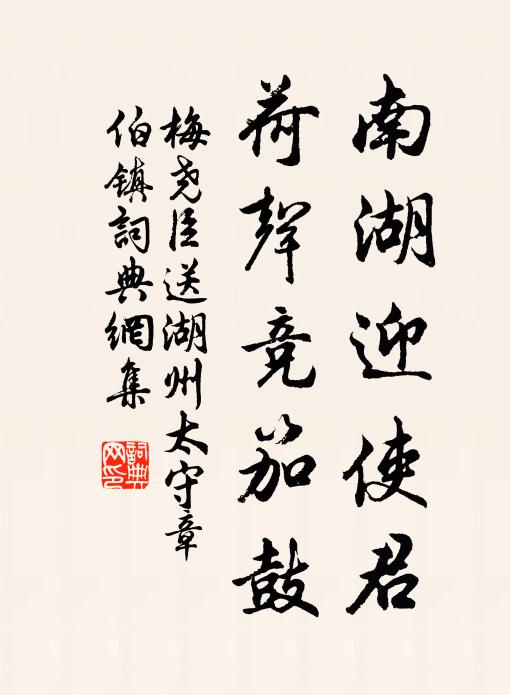 南湖迎使君
荷聲竞笳鼓
梅尧臣送湖州太守章
伯镇詞典網集
詞典网印